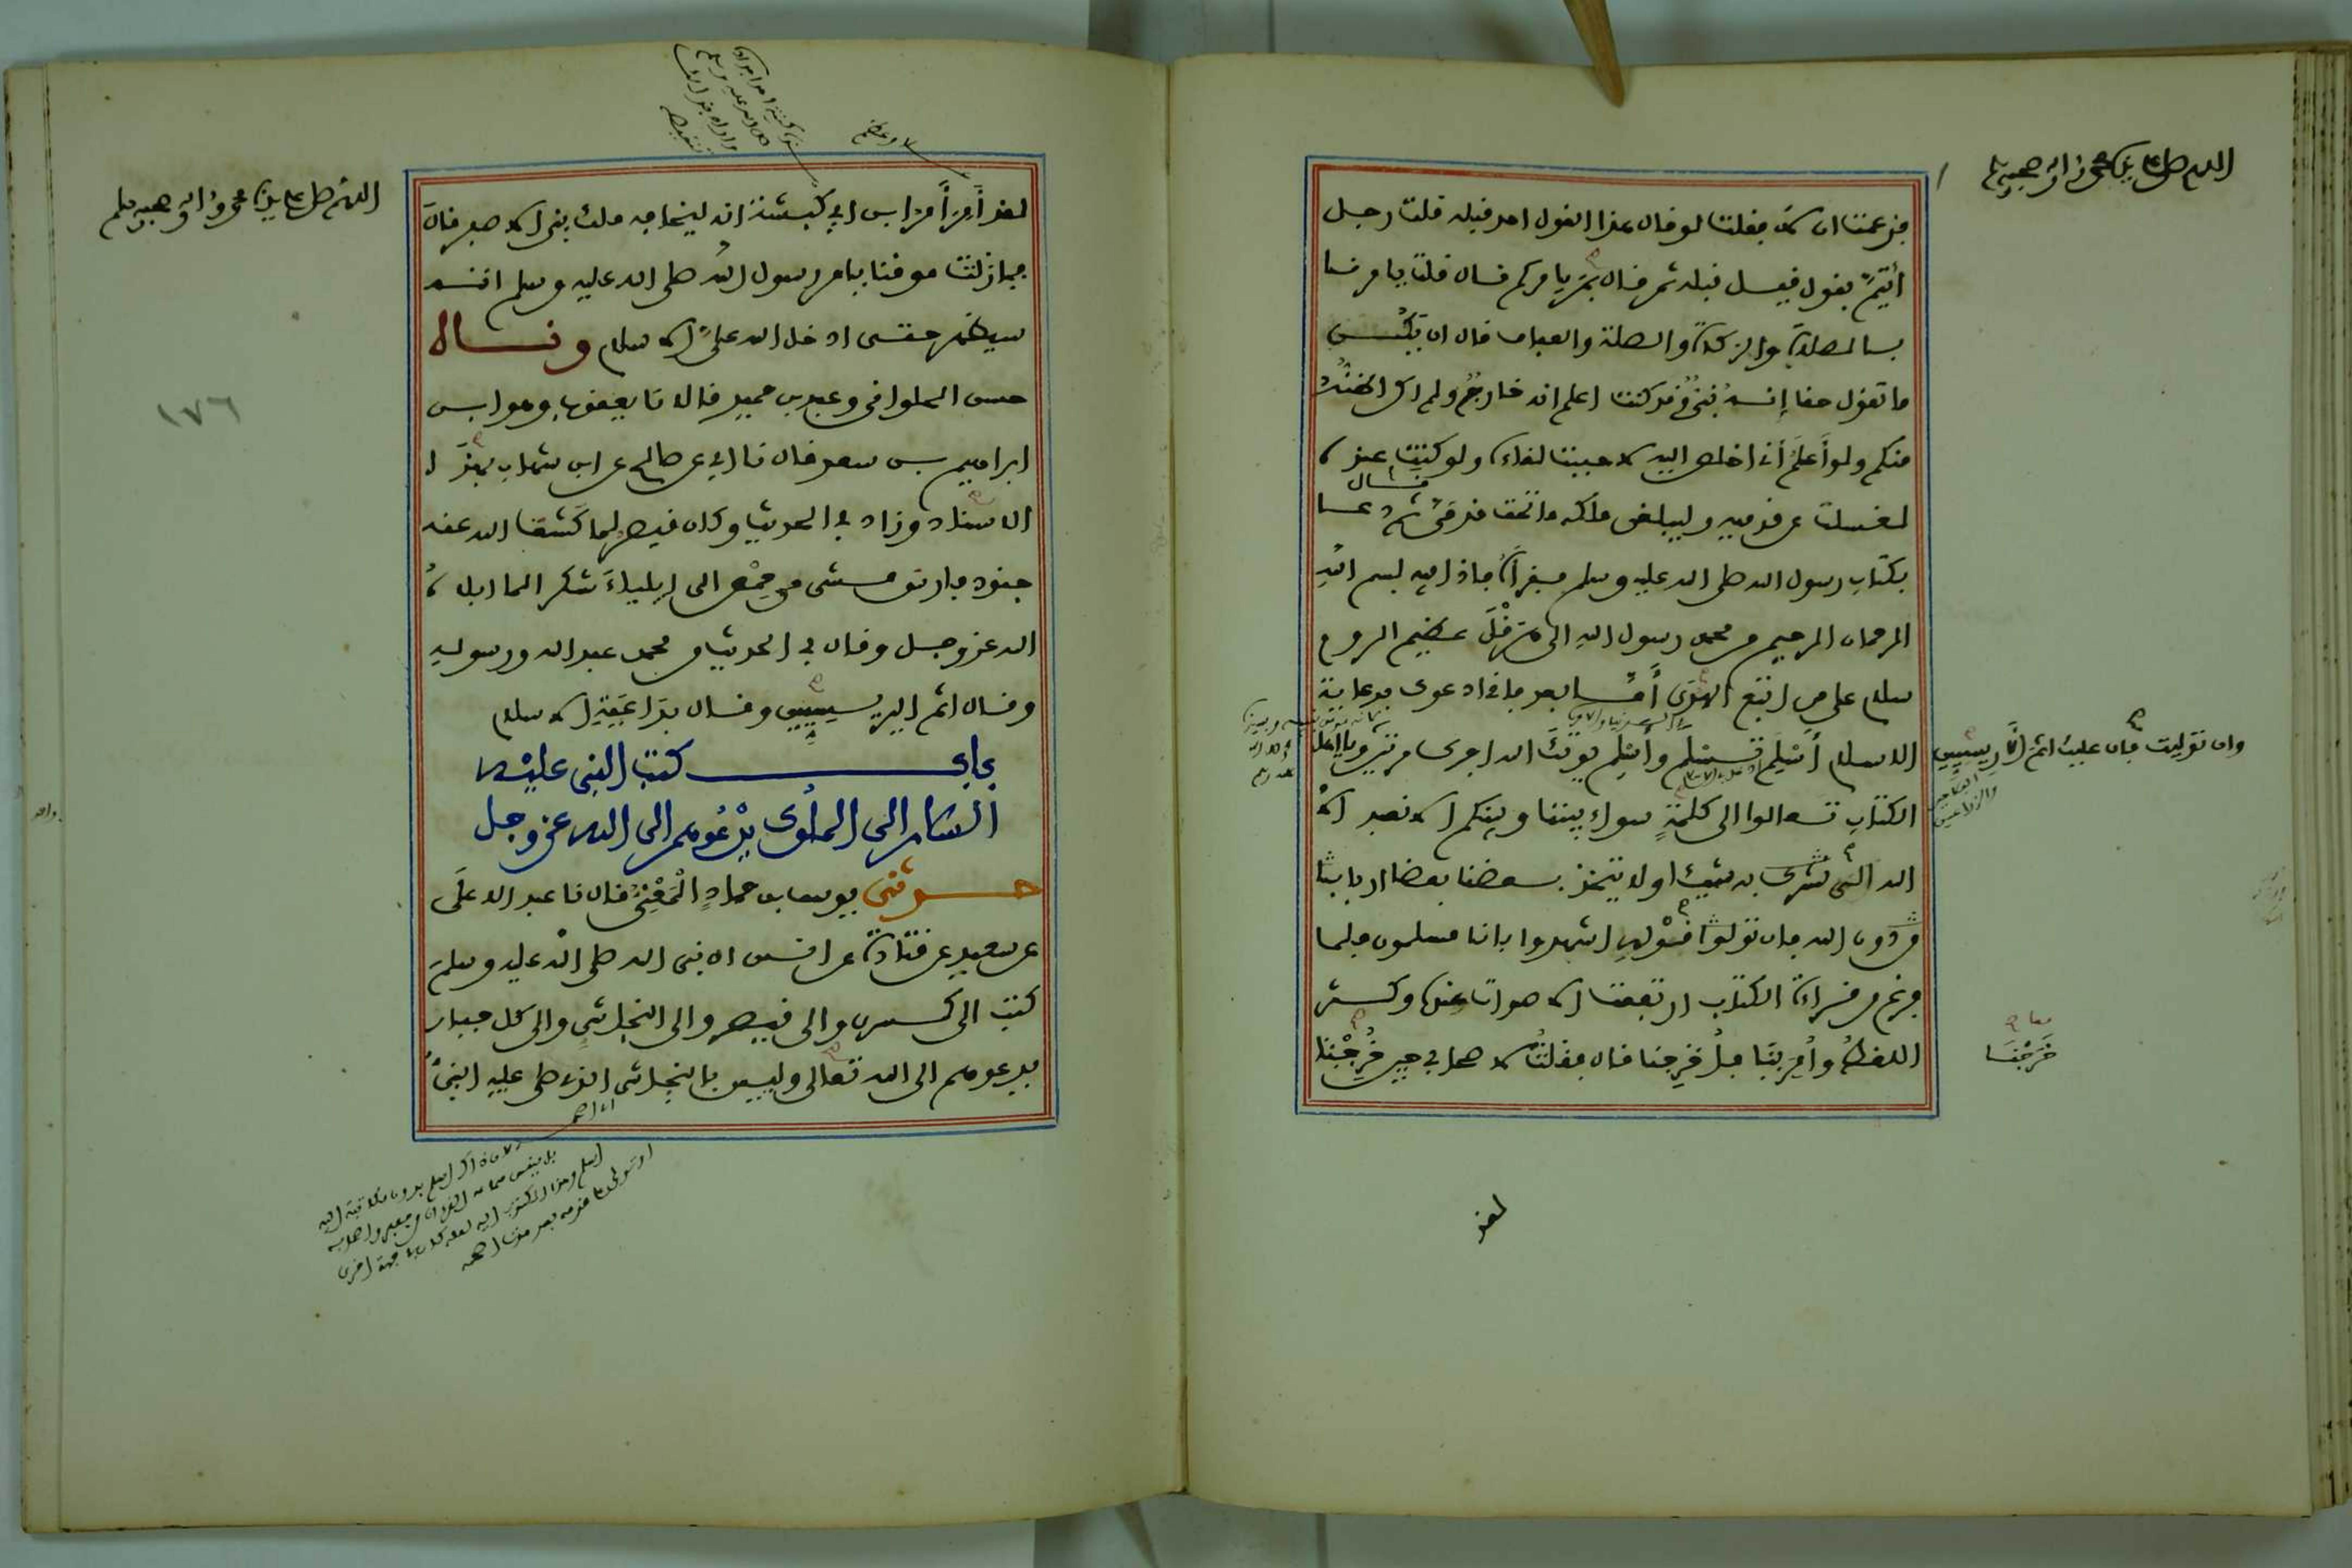 اللهم صل على سيدنا محمد وآله وصحبه وسلم
فزعمت ان لا فقلت لو قال هذا القول احد قبله قلت رجل
ائتم بقول قيل قبله ثم قال بم يامركم قال قلت يامرنا
بالصلاة والزكاة والصلة والعفاف قال ان يكن
ما تقول حقا إنه نبي وقد كنت اعلم انه خارج ولم اكن اظنه
منكم ولو أعلم أني اخلص اليه لاحببت لقاءه ولو كنت عنده
لغسلت عن قدميه وليبلغن ملكه ما تحت قدمي قال ثم دعا
بكتاب رسول الله صلى الله عليه وسلم فقرأه فاذا فيه بسم الله
الرحمان الرحيم من محمد رسول الله الى هرقل عظيم الروم
سلام على من اتبع الهدى أما بعد فاني ادعوك بدعاية
الاسلام أسلم تسلم وأسلم يوتك الله اجرك مرتين ويا اهل
وان توليت فان عليك اثم الأريسيين
الكتاب تعالوا الى كلمة سواء بيننا وبينكم الا نعبد الا
الله ولا نشرك به شيئا ولا يتخذ بعضنا بعضا اربابا
من دون الله فان تولوا فقولوا اشهدوا بانا مسلمون فلما
فرغ من قراءة الكتاب ارتفعت الاصوات عنده وكثر
اللغط وأمر بنا فأخرجنا قال فقلت لاصحابي حين خرجنا
خرجنا
لقد
اللهم صل على سيدنا محمد وآله وصحبه وسلم
١٧٦
لقد أمر أمر ابن ابي كبشة انه ليخافه ملك بني الاصفر قال
فما زلت موقنا بامر رسول الله صلى الله عليه وسلم انه
سيظهر حتى ادخل الله علي الاسلام وناه
حسن الحلواني وعبد بن حميد قالا نا يعقوب وهو ابن
ابراهيم بن سعد قال نا ابي عن صالح عن ابن شهاب بهذا
الاسناد وزاد في الحديث وكان قيصر لما كشف الله عنه
جنود فارس مشى من حمص الى إيلياء شكرا لما ابلاه
الله عز وجل وقال في الحديث من محمد عبد الله ورسوله
وقال اثم اليريسيين وقال بداعية الاسلام
باب كتب النبي عليه
السلام الى الملوك يدعوهم الى الله عز وجل
حدثني يوسف بن حماد المعني قال نا عبد الاعلى
عن سعيد عن قتادة عن انس ان نبي الله صلى الله عليه وسلم
كتب الى كسرى والى قيصر والى النجاشي والى كل جبار
يدعوهم الى الله تعالى وليس بالنجاشي الذي صلى عليه النبي